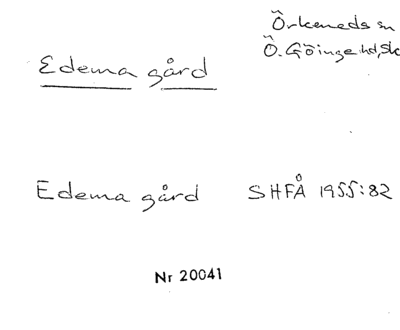 Örkeneds sn
Ö. Göinge hd, Sk
Edema gård
Edema gård SHFÅ 1955:82
Nr 20041